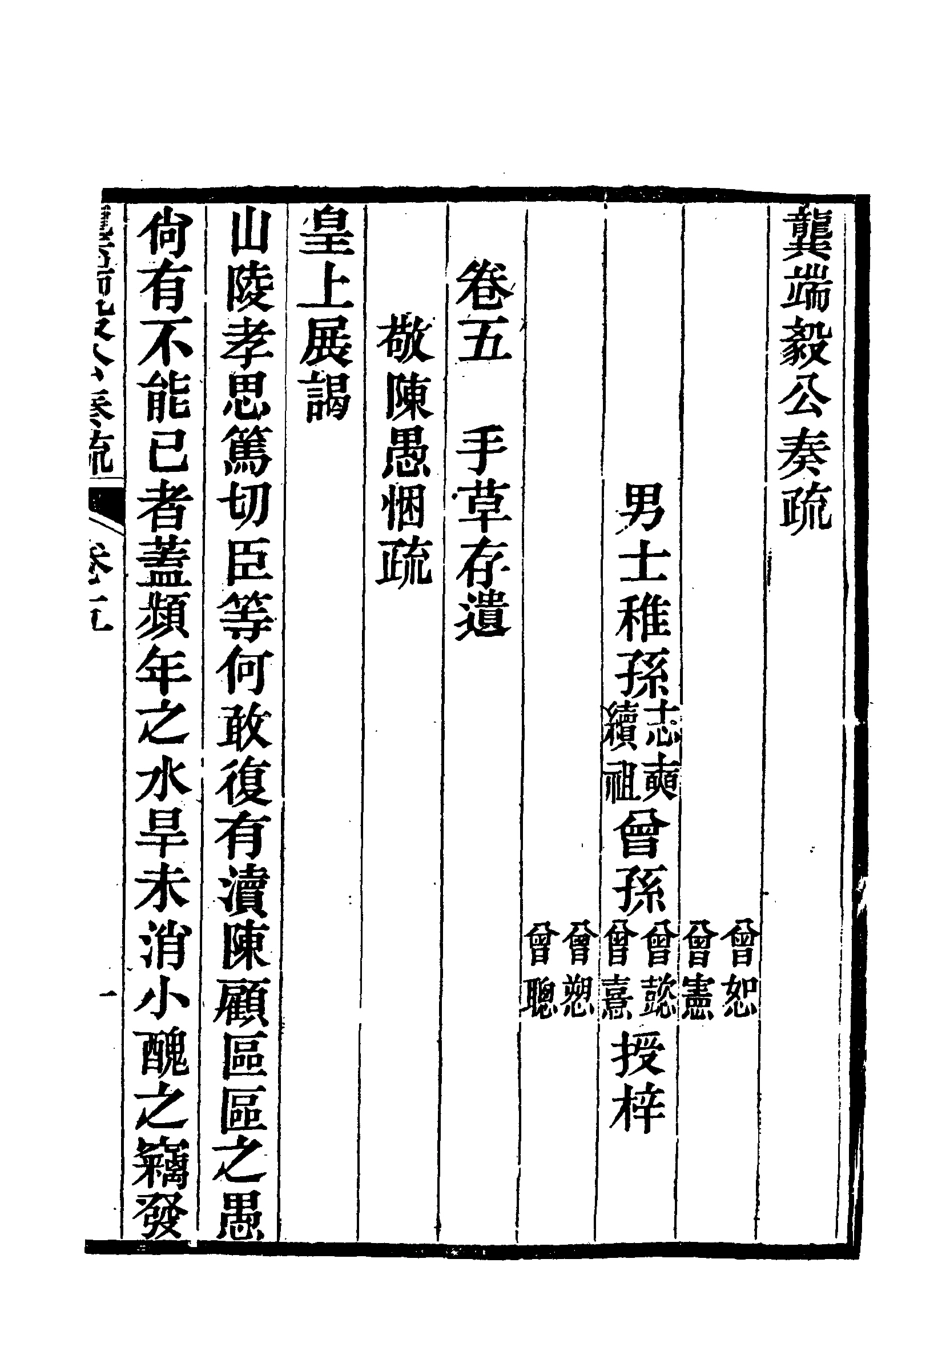 龔端毅公奏疏
男士稚孫志奭續祖曾孫曾恕曾憲曾懿曾熹曾愬曾聰授梓
卷五　手草存遺
敬陳愚悃疏
皇上展謁
山陵孝思篤切臣等何敢復有瀆陳顧區區之愚
尙有不能已者蓋頻年之水旱未消小醜之竊發
龔端毅公奏疏　卷五　一